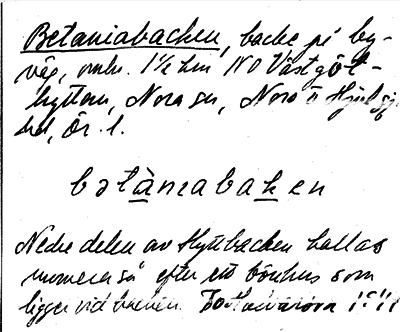 Betaniabacken, backe på by-
väg, omkr. 1½ km NO Västgöt-
hyttan, Nora sn, Nora o Hjulsjö
bd, Ör. l.
bətànıabaken
Nedre delen av Hyttbacken kallas
numera så efter ett bönhus som
ligger vid backen.